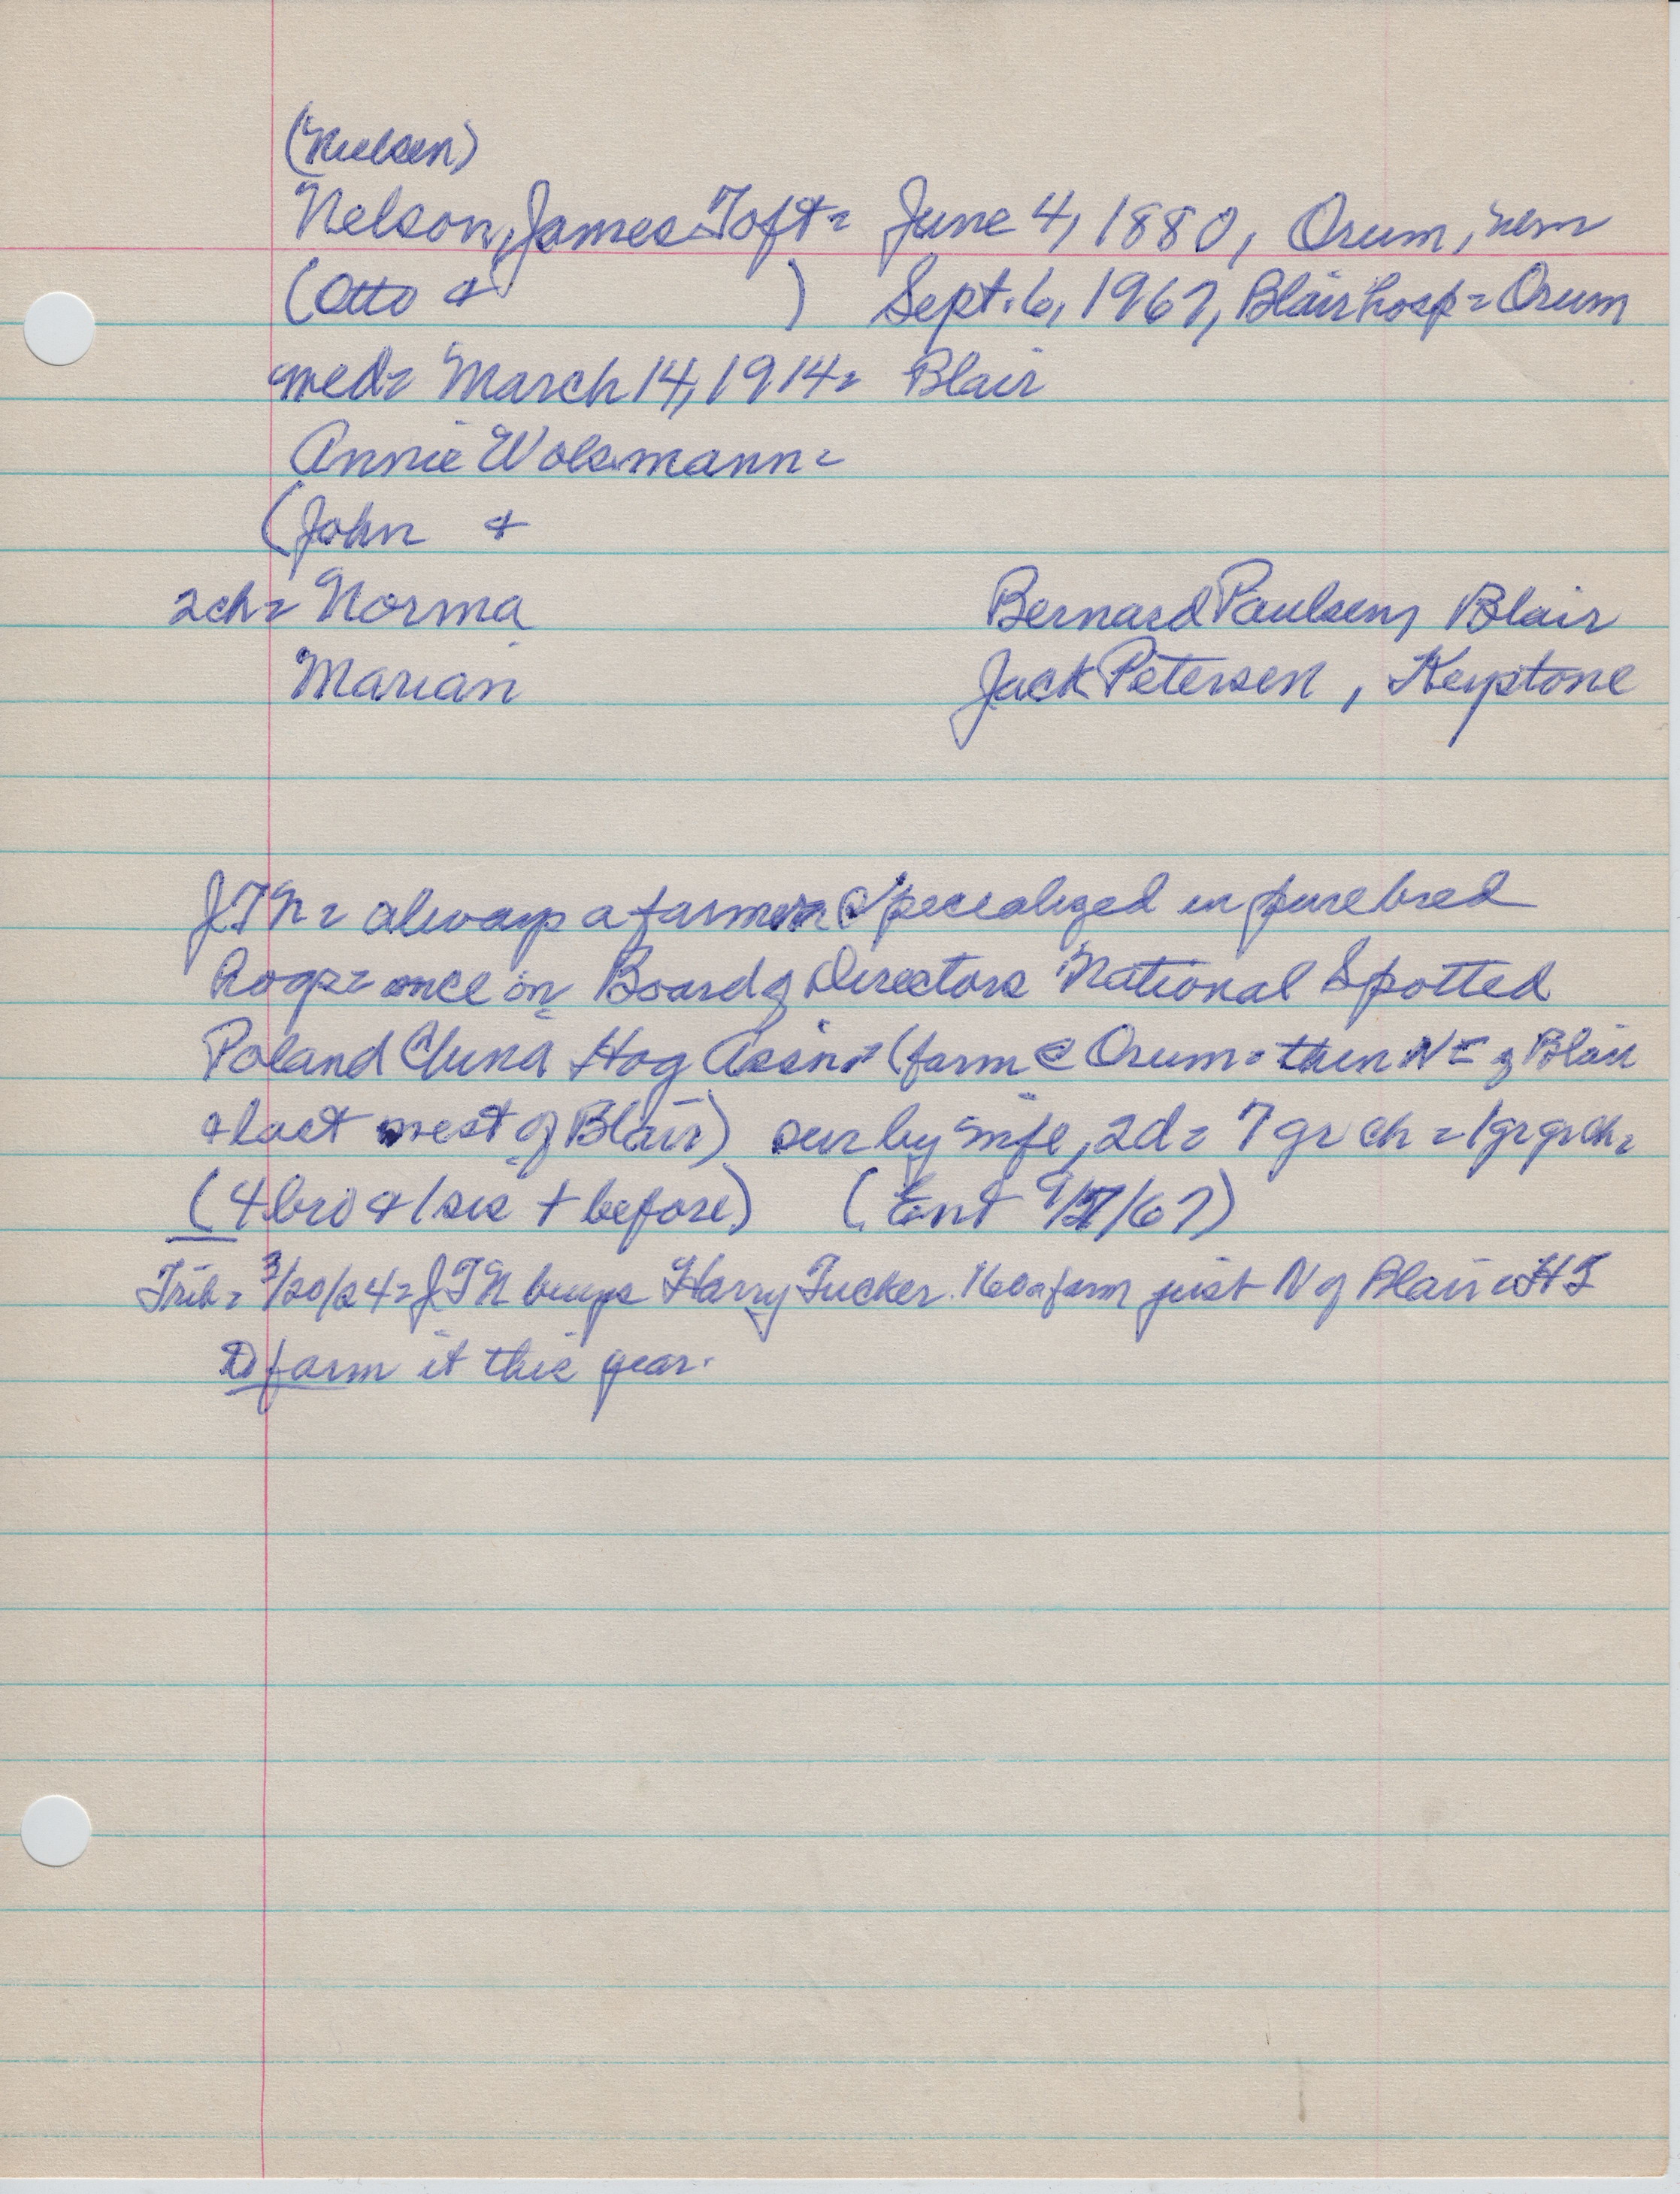 (Nielsen)
Nelson, James Toft = June 4, 1880, Orum, Nebr
(Otto & ) Sept. 6, 1967, Blair hosp = Orum
med = March 14, 1914 = Blair
Annie Wolsmann =
(John &
2ch = Norma Bernard Paulsen, Blair
Marian Jack Petersen, Keystone
JTN = always a farmer specialized in purebred
hogs = once on Board of Directors National Spotted
Poland China Hog Assn = (farm @ Orum = then N = of Blair
& last west of Blair) sur by wife, 2d = 7 gr ch = 1 gr gr ch =
(4 bro & 1 sis + before) (Ent 9/7/67)
Trib = 3/20/24 = JTN buys Harry Tucker 160a farm just N of Blair = HT
to farm it this year.